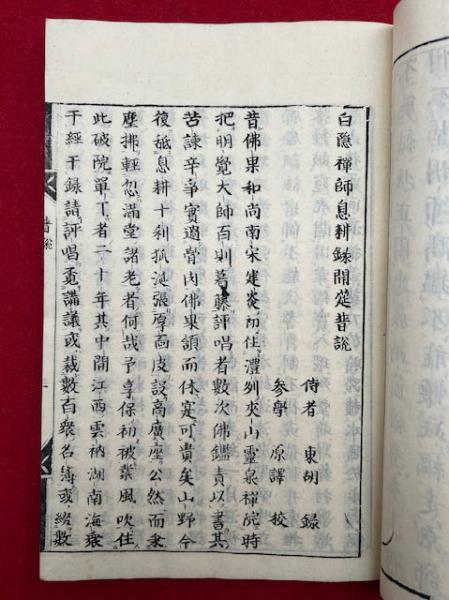 白隱禪師息耕錄開筵普說
侍者 東胡 錄
參學 原譯 校
昔佛果和尚南宋建炎初住澧州夾山靈泉禪院時
把明覺大師百則葛藤評唱者數次佛鑑責以書其
苦諫辛爭實過骨肉佛果頷而休寔可貴矣山野今
復舐息耕十刹孤涎張厚面皮說高廣座公然而秉
麈拂輕忽滿堂諸老者何哉予享保初被業風吹住
此破院單丁者二十年其中間江西雲衲湖南海衆
于經于錄請評唱覓講議或裁數百衆名簿或綴數
普說